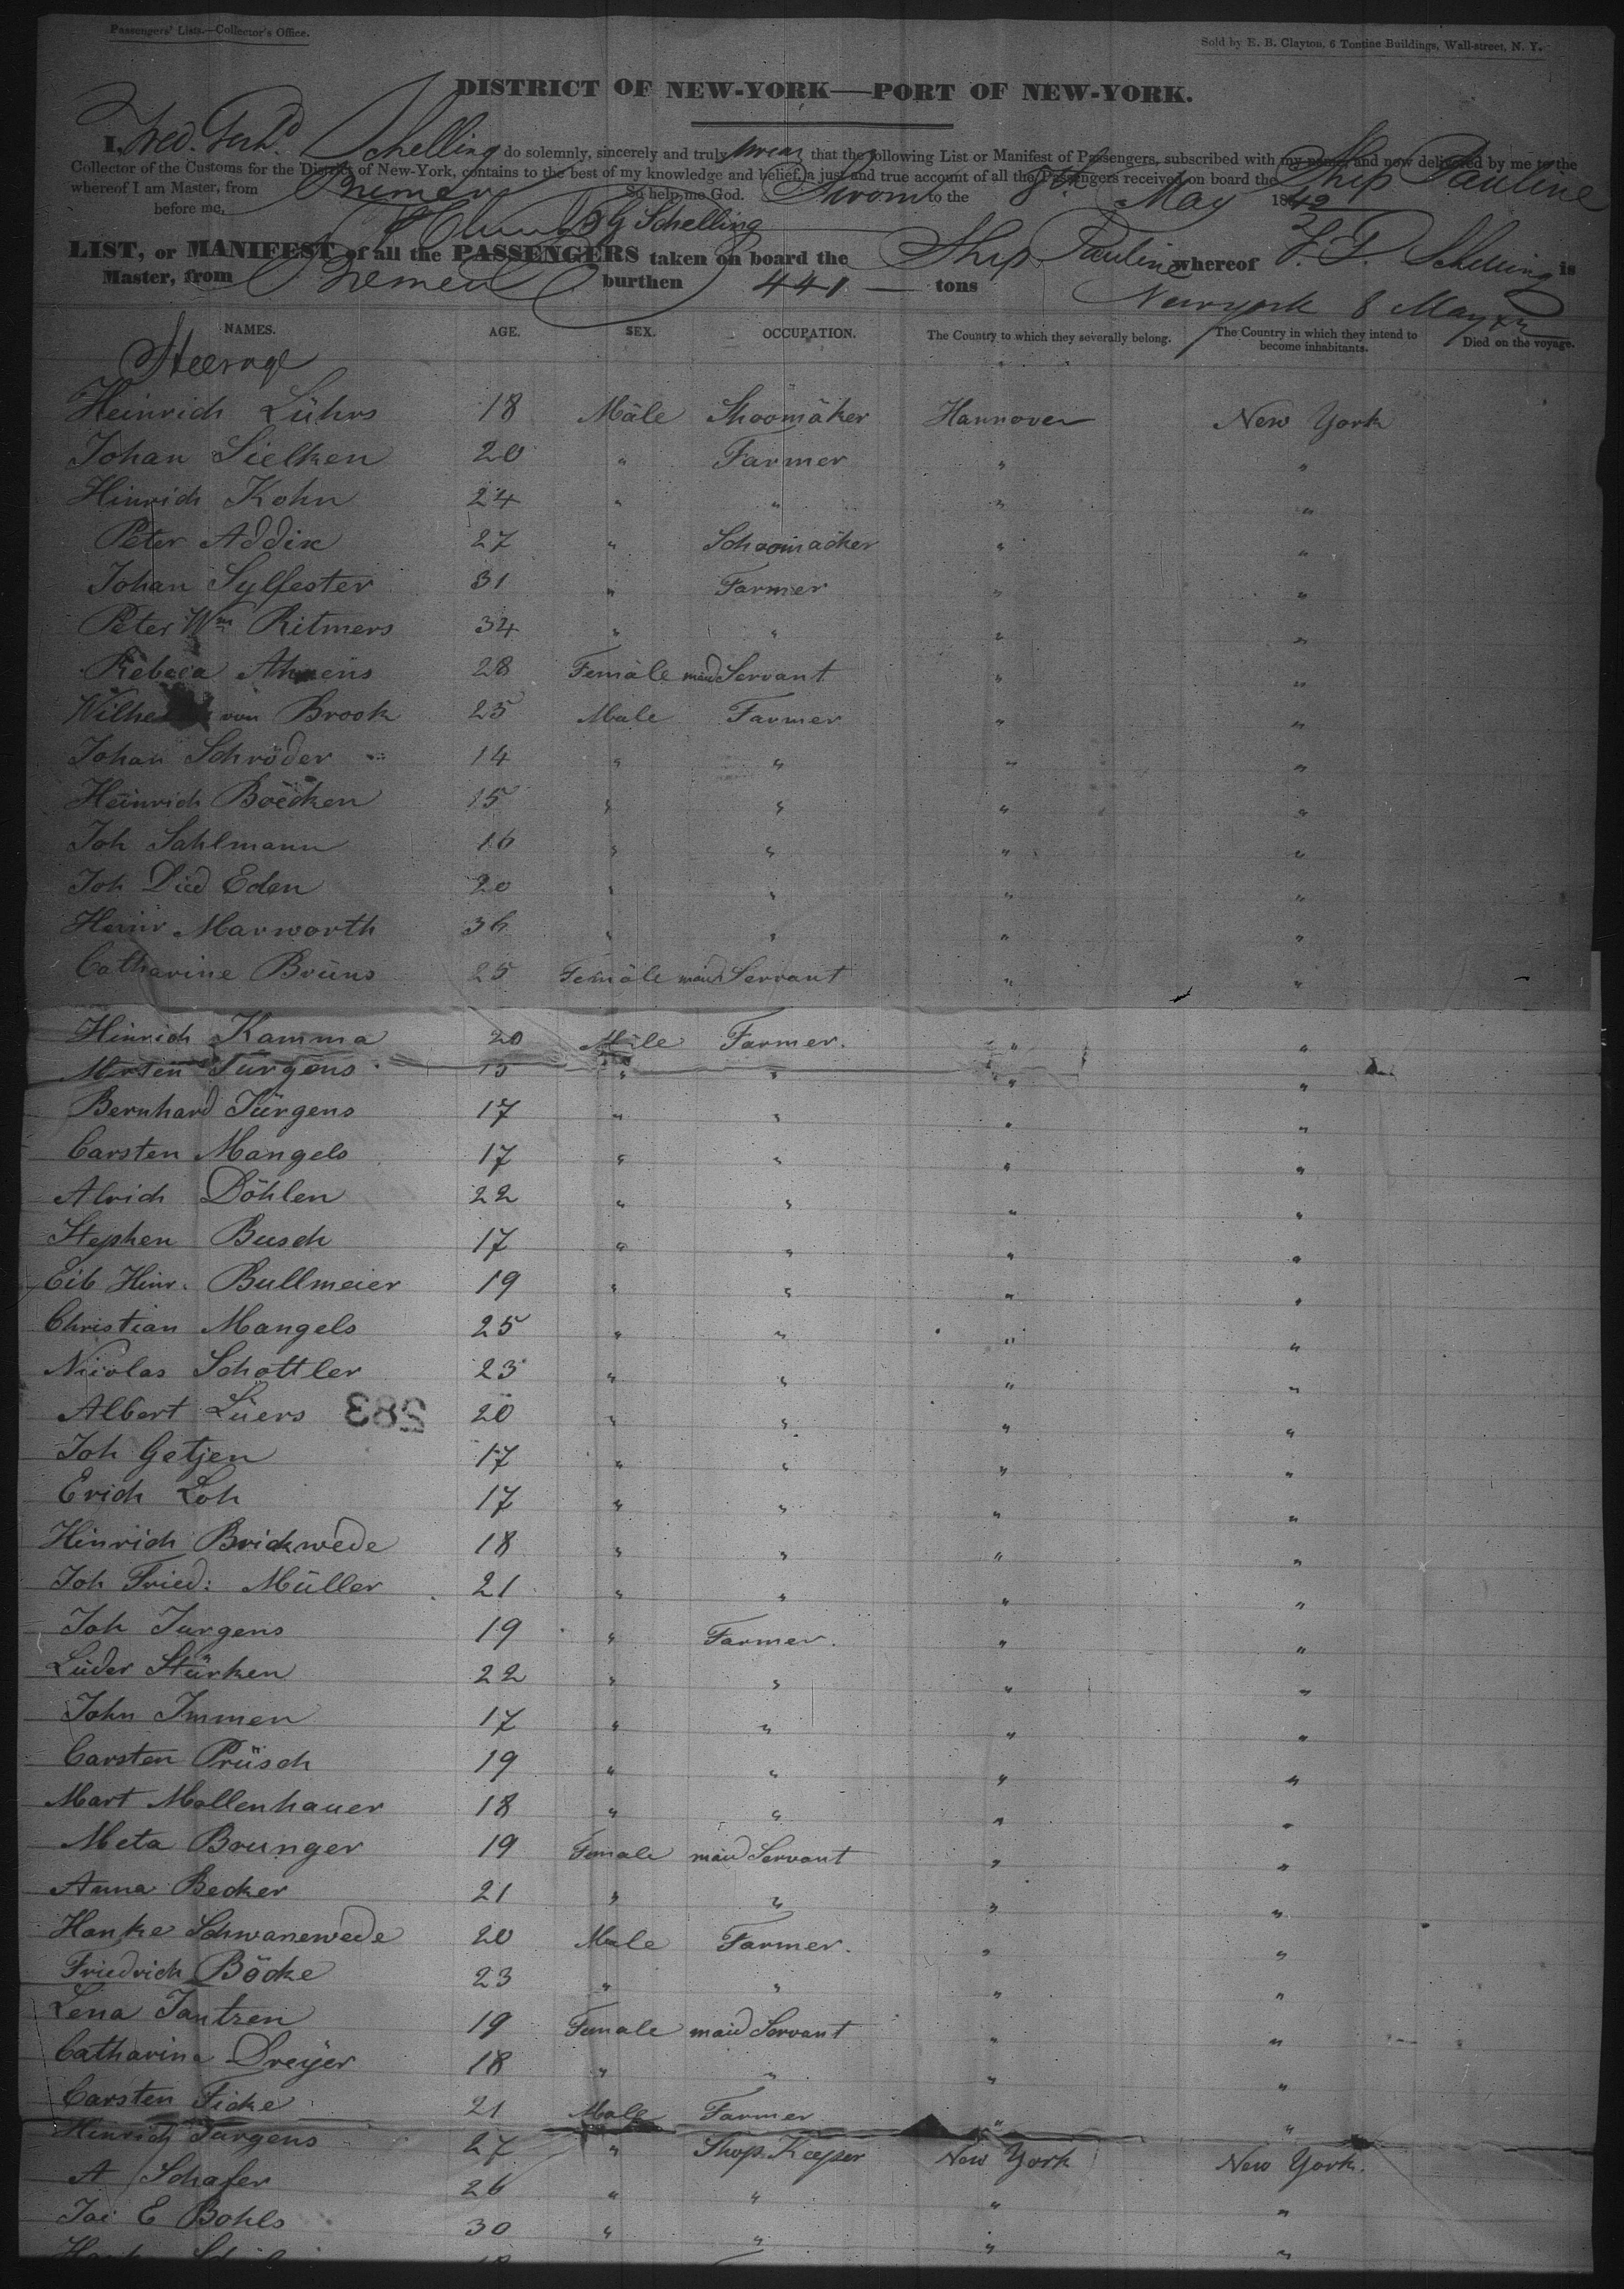 Passengers' Lists.—Collector's Office.
Sold by E. B. Clayton, 6 Tontine Buildings, Wall-street, N. Y.
DISTRICT OF NEW-YORK—PORT OF NEW-YORK.
I, Fred. Gerh.d Schelling do solemnly, sincerely and truly swear that the following List or Manifest of Passengers, subscribed with my name, and now delivered by me to the
Collector of the Customs for the District of New-York, contains to the best of my knowledge and belief, a just and true account of all the Passengers received on board the Ship Pauline
whereof I am Master, from Bremen So help me God. Sworn to the 8th May 1842
before me, F G Schelling
LIST, or MANIFEST of all the PASSENGERS taken on board the Ship Pauline whereof Schelling is
Master, from Bremen burthen 441 — tons Newyork 8 May
NAMES. AGE. SEX. OCCUPATION. The Country to which they severally belong. The Country in which they intend to become inhabitants. Died on the voyage.
Steerage
Heinrich Lührs 18 Male Shoomaker Hannover New York
Johan Sielken 20 " Farmer " "
Hinrich Kohn 24 " " " "
Peter Addix 27 " Schoomacker " "
Johan Sylfester 31 " Farmer " "
Peter Wm Ritmers 34 " " " "
Rebeca Ahrens 28 Female maid Servant " "
von Brook 25 Male Farmer " "
Johan Schröder 14 " " " "
Heinrich Boecken 15 " " " "
Joh Sahlmann 16 " " " "
Joh Died Eden 20 " " " "
Heinr Marworth 36 " " " "
Catharine Brüns 25 Female maid Servant " "
Hinrich Kamma 20 Male Farmer. " "
Jurgens " " " "
Bernhard Jürgens 17 " " " "
Carsten Mangels 17 " " " "
Alrich Döhlen 22 " " " "
Stephen Busch 17 " " " "
Eib Hinr. Bullmeier 19 " " " "
Christian Mangels 25 " " " "
Nicolas Schottler 23 " " " "
Albert Lüers 283 20 " " " "
Joh Getjen 17 " " " "
Erich Loh 17 " " " "
Hinrich Brickwede 18 " " " "
Joh Fried: Müller 21 " " " "
Joh Jurgens 19 " Farmer. " "
Lüder Stürken 22 " " " "
John Immen 17 " " " "
Carsten Prüsch 19 " " " "
Mart Mollenhauer 18 " " " "
Meta Brunger 19 Female maid Servant " "
Anna Becker 21 " " " "
Hanke Schwanewede 20 Male Farmer. " "
Friedrich Böcke 23 " " " "
Lena Jantzen 19 Female maid Servant " "
Catharina Dreyer 18 " " " "
Carsten Ficke 21 Male Farmer " "
Hinrich Jurgens 27 " Shop Keeper New York New York.
A Schafer 26 " " " "
E Bohls 30 " " " "